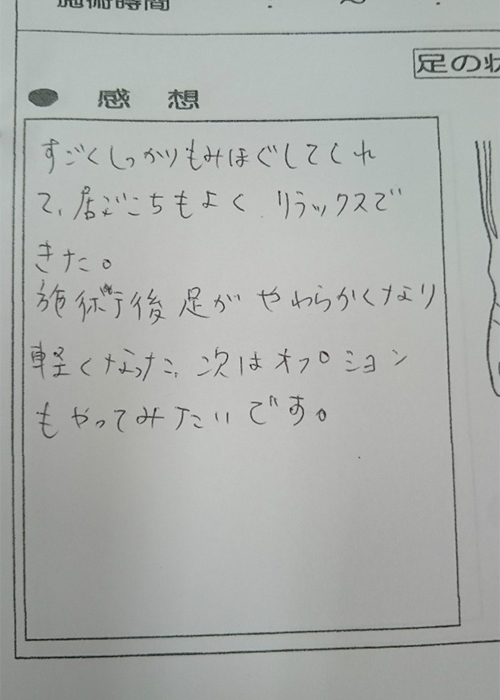 施術時間 : 〜 :
足の状
● 感想
すごくしっかりもみほぐしてくれ
て、居ごこちもよく リラックスで
きた。
施術後 足が やわらかくなり
軽くなった、次はオプション
もやってみたいです。